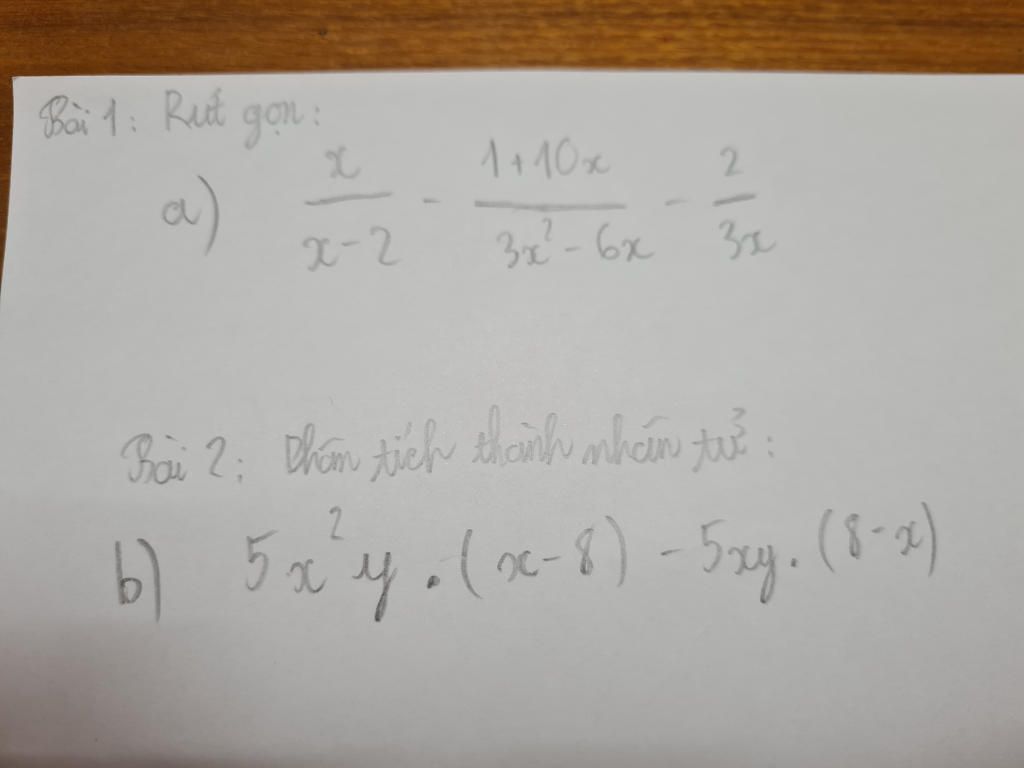 Bài 1: Rút gọn:
a) x/(x-2) - (1+10x)/(3x²-6x) - 2/(3x)
Bài 2: Phân tích thành nhân tử:
b) 5x²y.(x-8) - 5xy.(8-x)